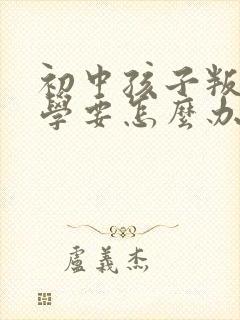 初中孩子叛
學要怎麼办
盧義杰